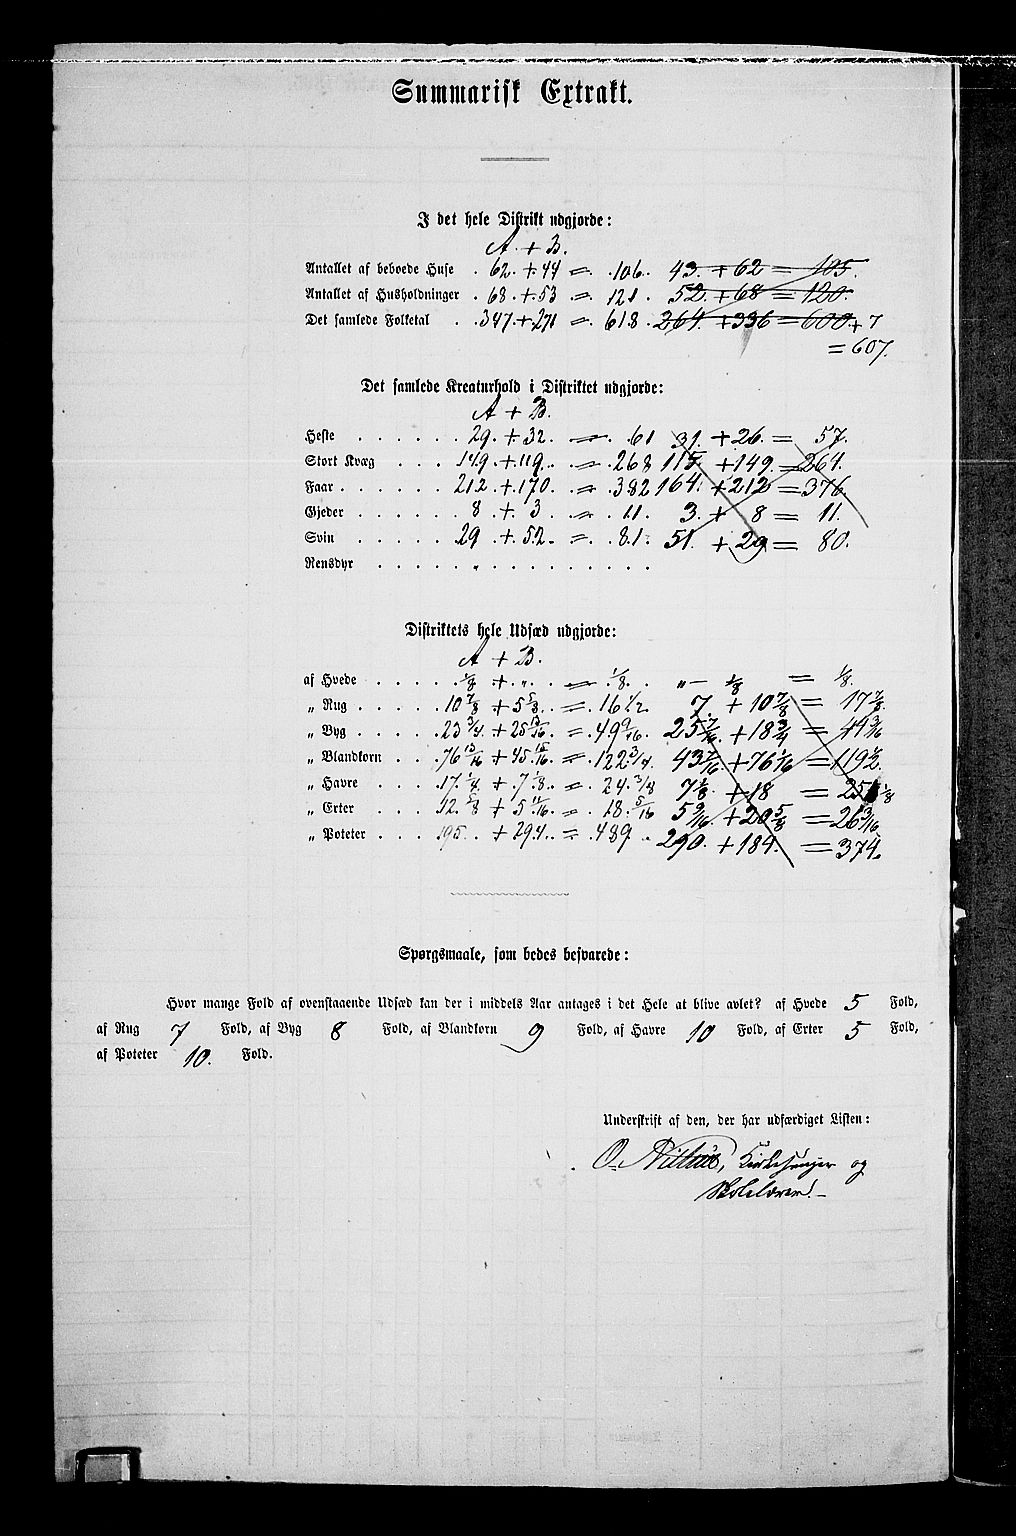 Summarisk Extrakt.
I det hele Distrikt udgjorde:
A. + B.
Antallet af beboede Huse . 62. + 44 = . 106. 43. + 62 = 105.
Antallet af Husholdninger . 68. + 53 = 121. 52. + 68 = 120.
Det samlede Folketal . . 347. + 271 = 618. 264. + 336 = 600 + 7
= 607.
Det samlede Kreaturhold i Distriktet udgjorde:
A + B.
Heste . . . . . . 29. + 32. = . 61 31. + 26. = 57.
Stort Kvæg . . . 149. + 119. . = . 268 115. + 149. = 264.
Faar . . . . . . 212. + 170. = . 382 164. + 212 = 376.
Gjeder . . . . . . 8 . + 3 . = . 11. 3. + 8 = 11.
Svin . . . . . . 29 . + 52. . = . 81. 51. + 29 = 80.
Rensdyr . . . . . „ . . . . . . . . .
Distriktets hele Udsæd udgjorde:
A + B.
af Hvede . . . . 1/8 + . „ . = . 1/8. „ — 1/8 = 1/8.
„ Rug . . . . 10 7/8 + 5 5/8 . = . 16 1/2. 7. + 10 7/8 = 17 7/8.
„ Byg . . . . 23 3/4. + 25 13/16. = . 49 9/16. 25 7/16. + 18 3/4 = 44 3/16
„ Blandkorn . . 76 13/16 + 45 15/16. = . 122 3/4. 43 7/16. + 76 1/16 = 119 1/2.
„ Havre . . . . 17. 1/4 + . 7 1/8. . = . 24. 3/8 7 1/8. + 18 = 25 1/8
„ Erter . . . . 12. 5/8 + 5 11/16. . = . 18. 5/16 5 9/16. + 20 5/8 = 26 3/16
„ Poteter . . . 195. . + 294. . = . 489 . 290. + 184. = 374.
Spørgsmaale, som bedes besvarede:
Hvor mange Fold af ovenstaaende Udsæd kan der i middels Aar antages i det Hele at blive avlet? af Hvede 5 Fold,
af Rug 7 Fold, af Byg 8 Fold, af Blandkorn 9 Fold, af Havre 10 Fold, af Erter 5 Fold,
af Poteter 10. Fold.
Underskrift af den, der har udfærdiget Listen:
O. Kirkesanger og
Skolelærer.